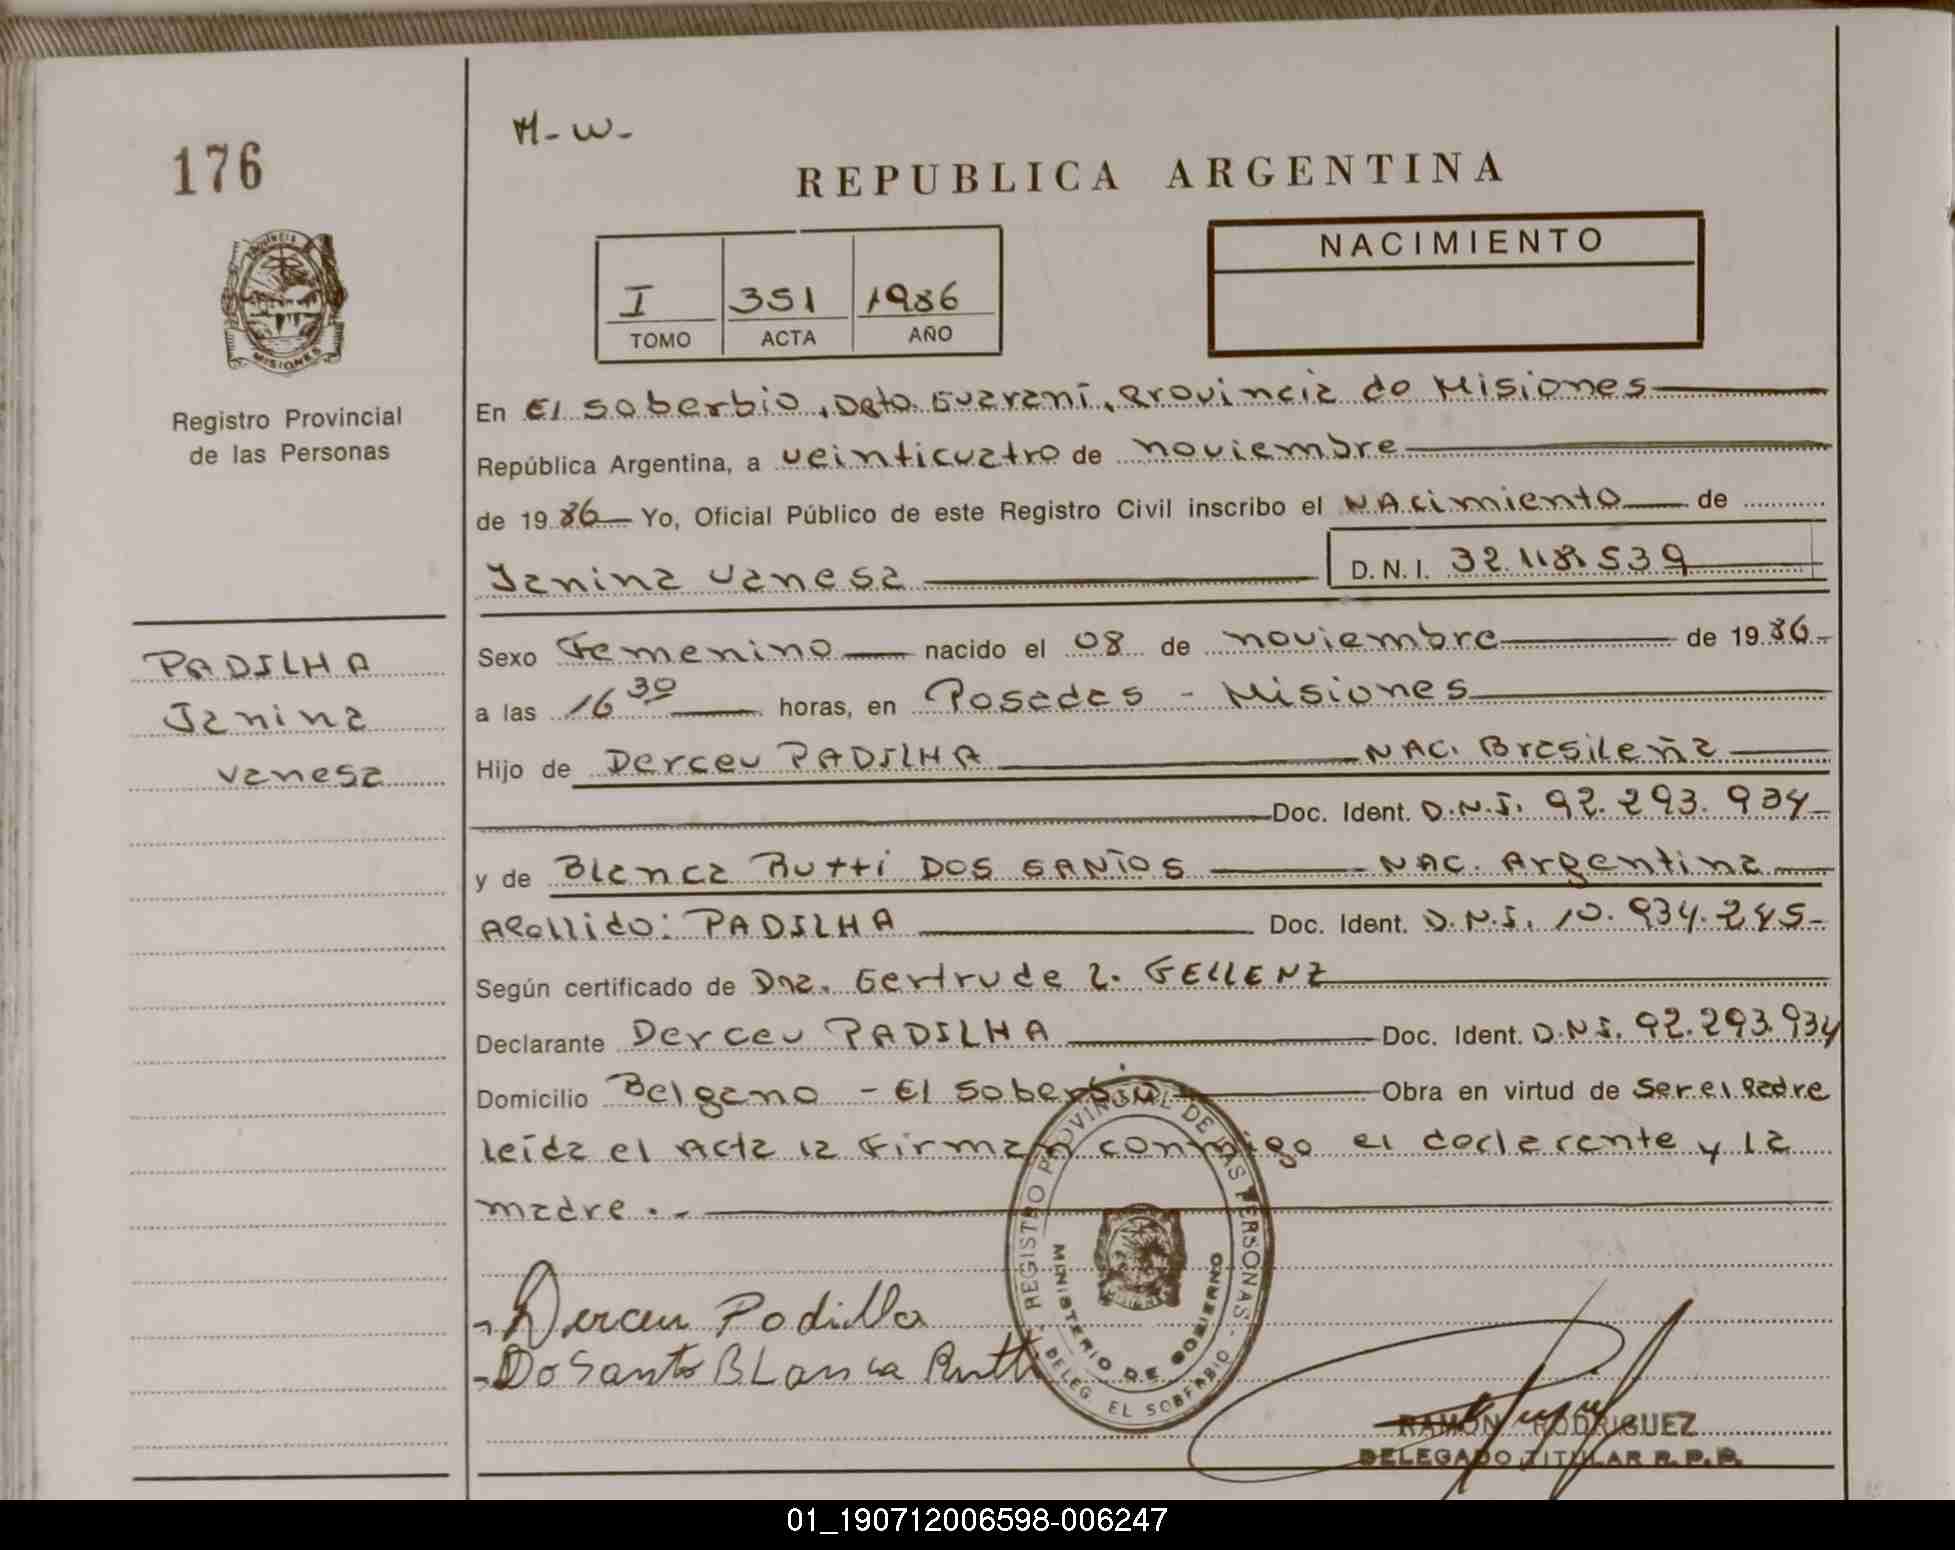 176
H-W-
REPUBLICA ARGENTINA
NACIMIENTO
I 351 1986
TOMO ACTA AÑO
MISIONES
Registro Provincial
de las Personas
En El Soberbio, Dpto Guaraní, Provincia de Misiones
República Argentina, a veinticuatro de noviembre
de 1986 Yo, Oficial Público de este Registro Civil inscribo el NAcimiento de
Janina Vanesa D.N.I. 32.118.539
PADILHA
Janina
Vanesa
Sexo Femenino nacido el 08 de noviembre de 1986-
a las 16 30 horas, en Posadas - Misiones
Hijo de Derceu PADILHA NAC. Brasileña
Doc. Ident. D.N.I. 92.293.934-
y de Blanca Rutti DOS SANTOS NAC. Argentina
Apellido: PADILHA Doc. Ident. D.N.I. 10.934.245-
Según certificado de Dra. Gertrude L. GELLENZ
Declarante Derceu PADILHA Doc. Ident. D.N.I. 92.293.934
Domicilio Belgrano - El Soberbio Obra en virtud de Ser el Padre
leída el Acta la Firman conmigo el declarante y la
madre.-
REGISTRO PROVINCIAL DE LAS PERSONAS - DELEG. EL SOBERBIO -
MINISTERIO DE GOBIERNO
- Derceu Padilla
- Do Santo BLanca Rutti
RAMON RODRIGUEZ
DELEGADO TITULAR R.P.P.
01_190712006598-006247